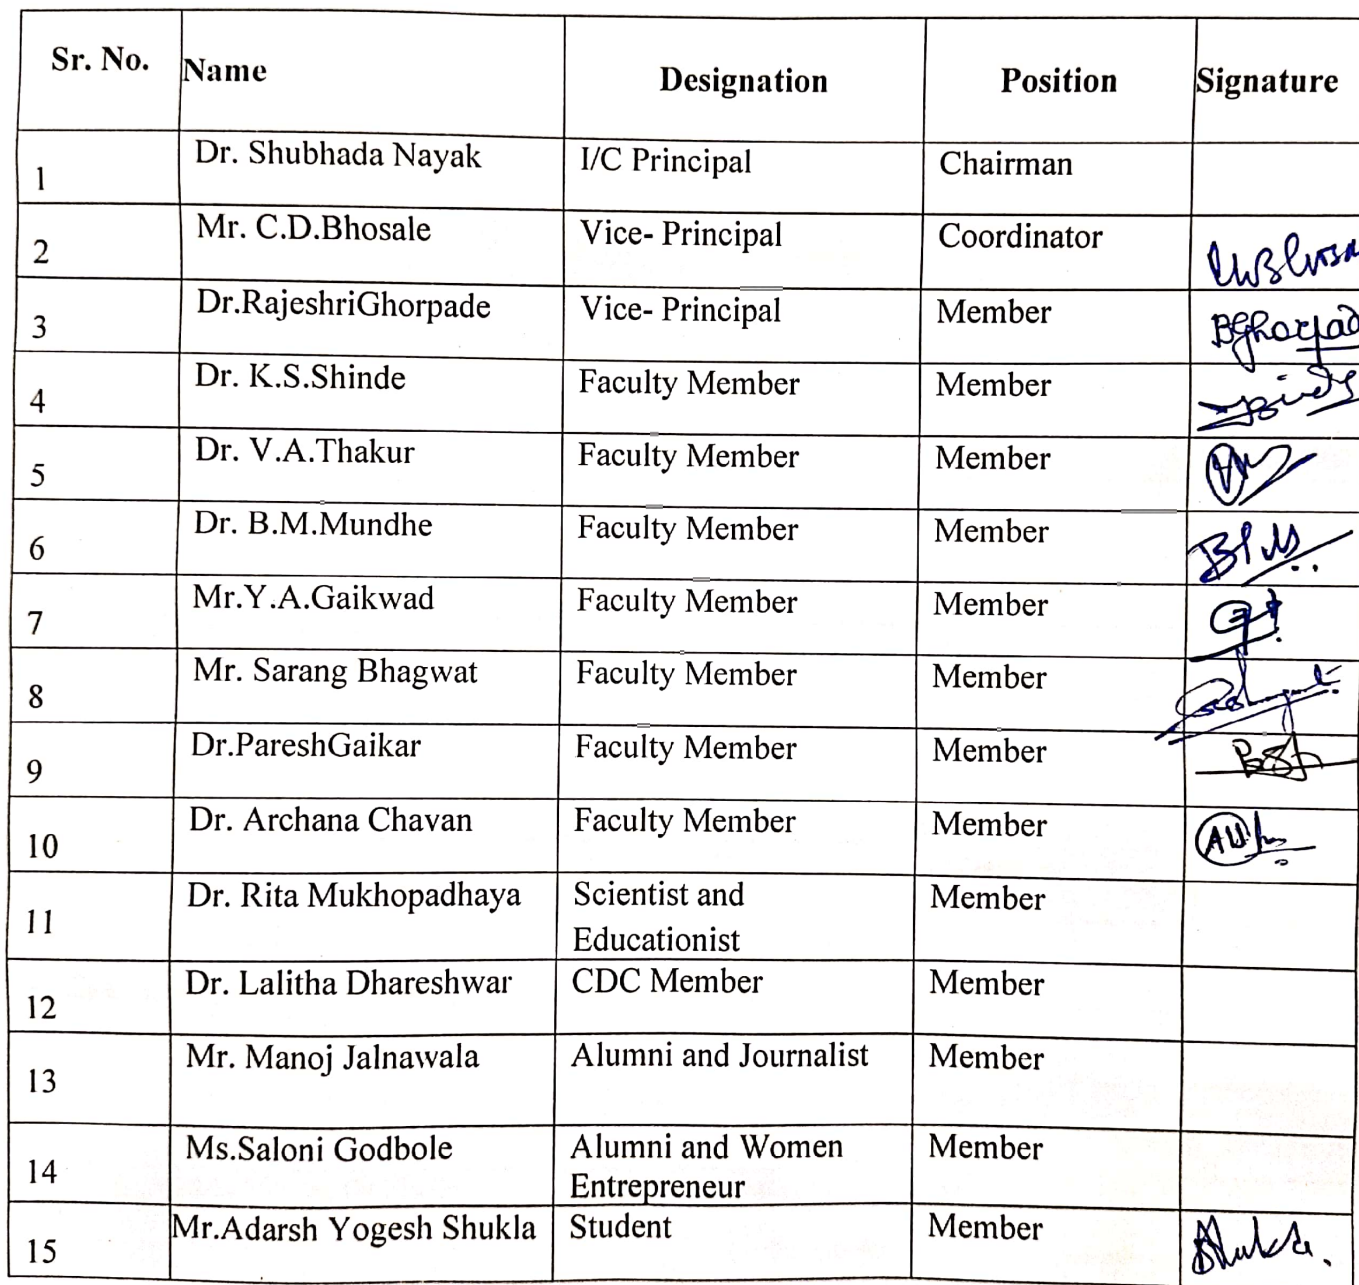 Sr. No. Name Designation Position Signature
1 Dr. Shubhada Nayak I/C Principal Chairman
2 Mr. C.D.Bhosale Vice- Principal Coordinator
3 Dr.RajeshriGhorpade Vice- Principal Member
4 Dr. K.S.Shinde Faculty Member Member
5 Dr. V.A.Thakur Faculty Member Member
6 Dr. B.M.Mundhe Faculty Member Member
7 Mr.Y.A.Gaikwad Faculty Member Member
8 Mr. Sarang Bhagwat Faculty Member Member
9 Dr.PareshGaikar Faculty Member Member
10 Dr. Archana Chavan Faculty Member Member
11 Dr. Rita Mukhopadhaya Scientist and Member
Educationist
12 Dr. Lalitha Dhareshwar CDC Member Member
13 Mr. Manoj Jalnawala Alumni and Journalist Member
14 Ms.Saloni Godbole Alumni and Women Member
Entrepreneur
15 Mr.Adarsh Yogesh Shukla Student Member